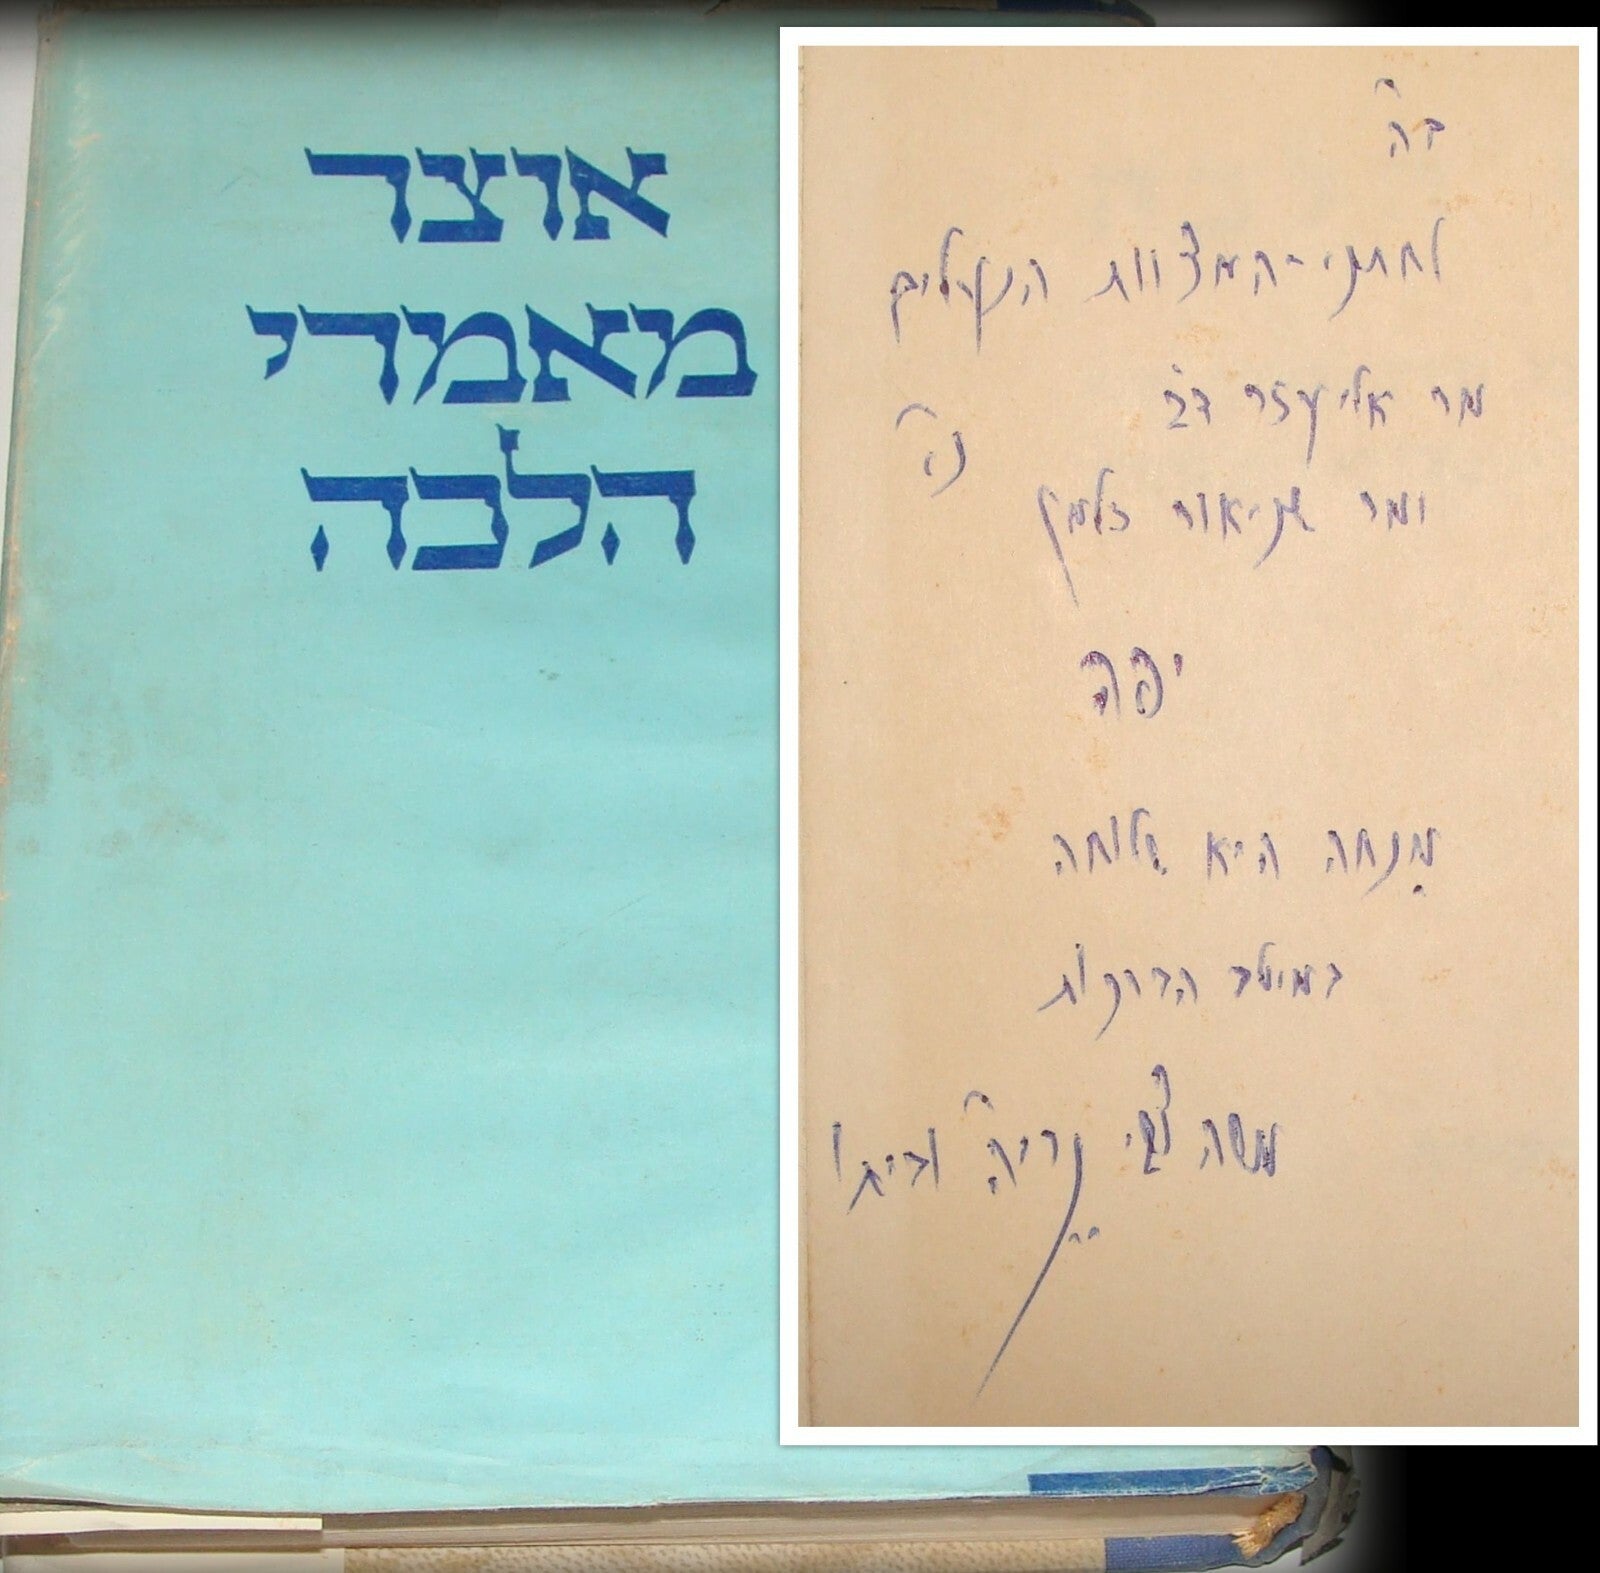 אוצר
מאמרי
הלכה
ב"ה
לחתני-המצוות הנעלים
מר אליעזר דב
ומר שניאור זלמן
נ"י
יפה
מִנחה היא שלוחה
במיטב הברכות
משה צבי נריה וביתו